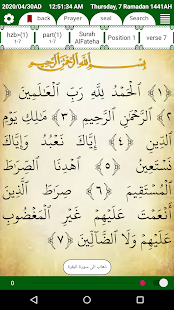 2020/04/30AD 12:51:34 AM Thursday, 7 Ramadan 1441AH
Book Prayer seal Search
hzb>(1) 1-7 part(1) 1-7 Surah AlFateha Position 1 verse 7
بسم الله الرحمن الرحيم
﴿١﴾ الْحَمْدُ لِلَّهِ رَبِّ الْعَالَمِينَ
﴿٢﴾ الرَّحْمَنِ الرَّحِيمِ ﴿٣﴾ مَالِكِ يَوْمِ
الدِّينِ ﴿٤﴾ إِيَّاكَ نَعْبُدُ وَإِيَّاكَ
نَسْتَعِينُ ﴿٥﴾ اهْدِنَا الصِّرَاطَ
الْمُسْتَقِيمَ ﴿٦﴾ صِرَاطَ الَّذِينَ
أَنْعَمْتَ عَلَيْهِمْ غَيْرِ الْمَغْضُوبِ
عَلَيْهِمْ وَلَا الضَّالِّينَ ﴿٧﴾
ذهاب الى سورة البقرة
0